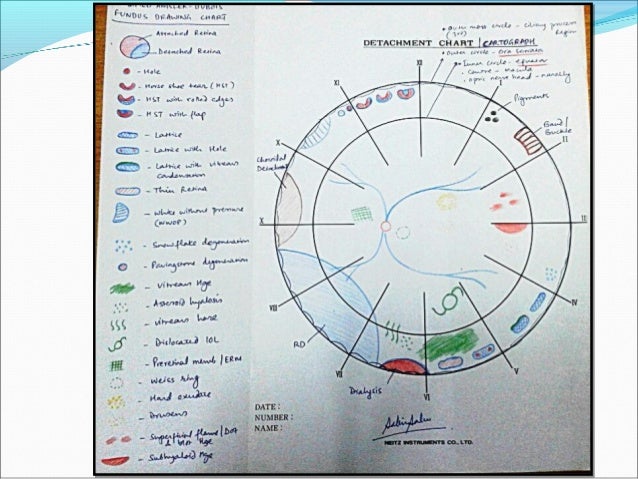 AMSLER-DUBOIS
FUNDUS DRAWING CHART
Attached Retina
Detached Retina
- Hole
- Horse shoe tear (HST)
- HST with rolled edges
- HST with flap
- Lattice
- Lattice with Hole
- Lattice with vitreous condensation
- Thin Retina
- White without pressure (WWOP)
- Snowflake degeneration
- Pavingstone degeneration
- Vitreous Hge
- Asteroid hyalosis
- Vitreous haze
- Dislocated IOL
- Preretinal memb / ERM
- Weiss ring
- Hard exudate
- Drusens
- Superficial flame / Dot & blot Hge
- Subhyaloid Hge
• Outer most circle - Ciliary process
(3rd) Region
DETACHMENT CHART / CARTOGRAPH
• Outer circle - Ora serrata
• Inner circle - equator
• Centre - macula
• Optic nerve head - nasally
XII
XI
I
Pigments
Band / Buckle
II
X
Choroidal Detachment
X
III
VIII
IV
RD
VII
VI
V
Dialysis
DATE :
NUMBER :
NAME :
NEITZ INSTRUMENTS CO., LTD.